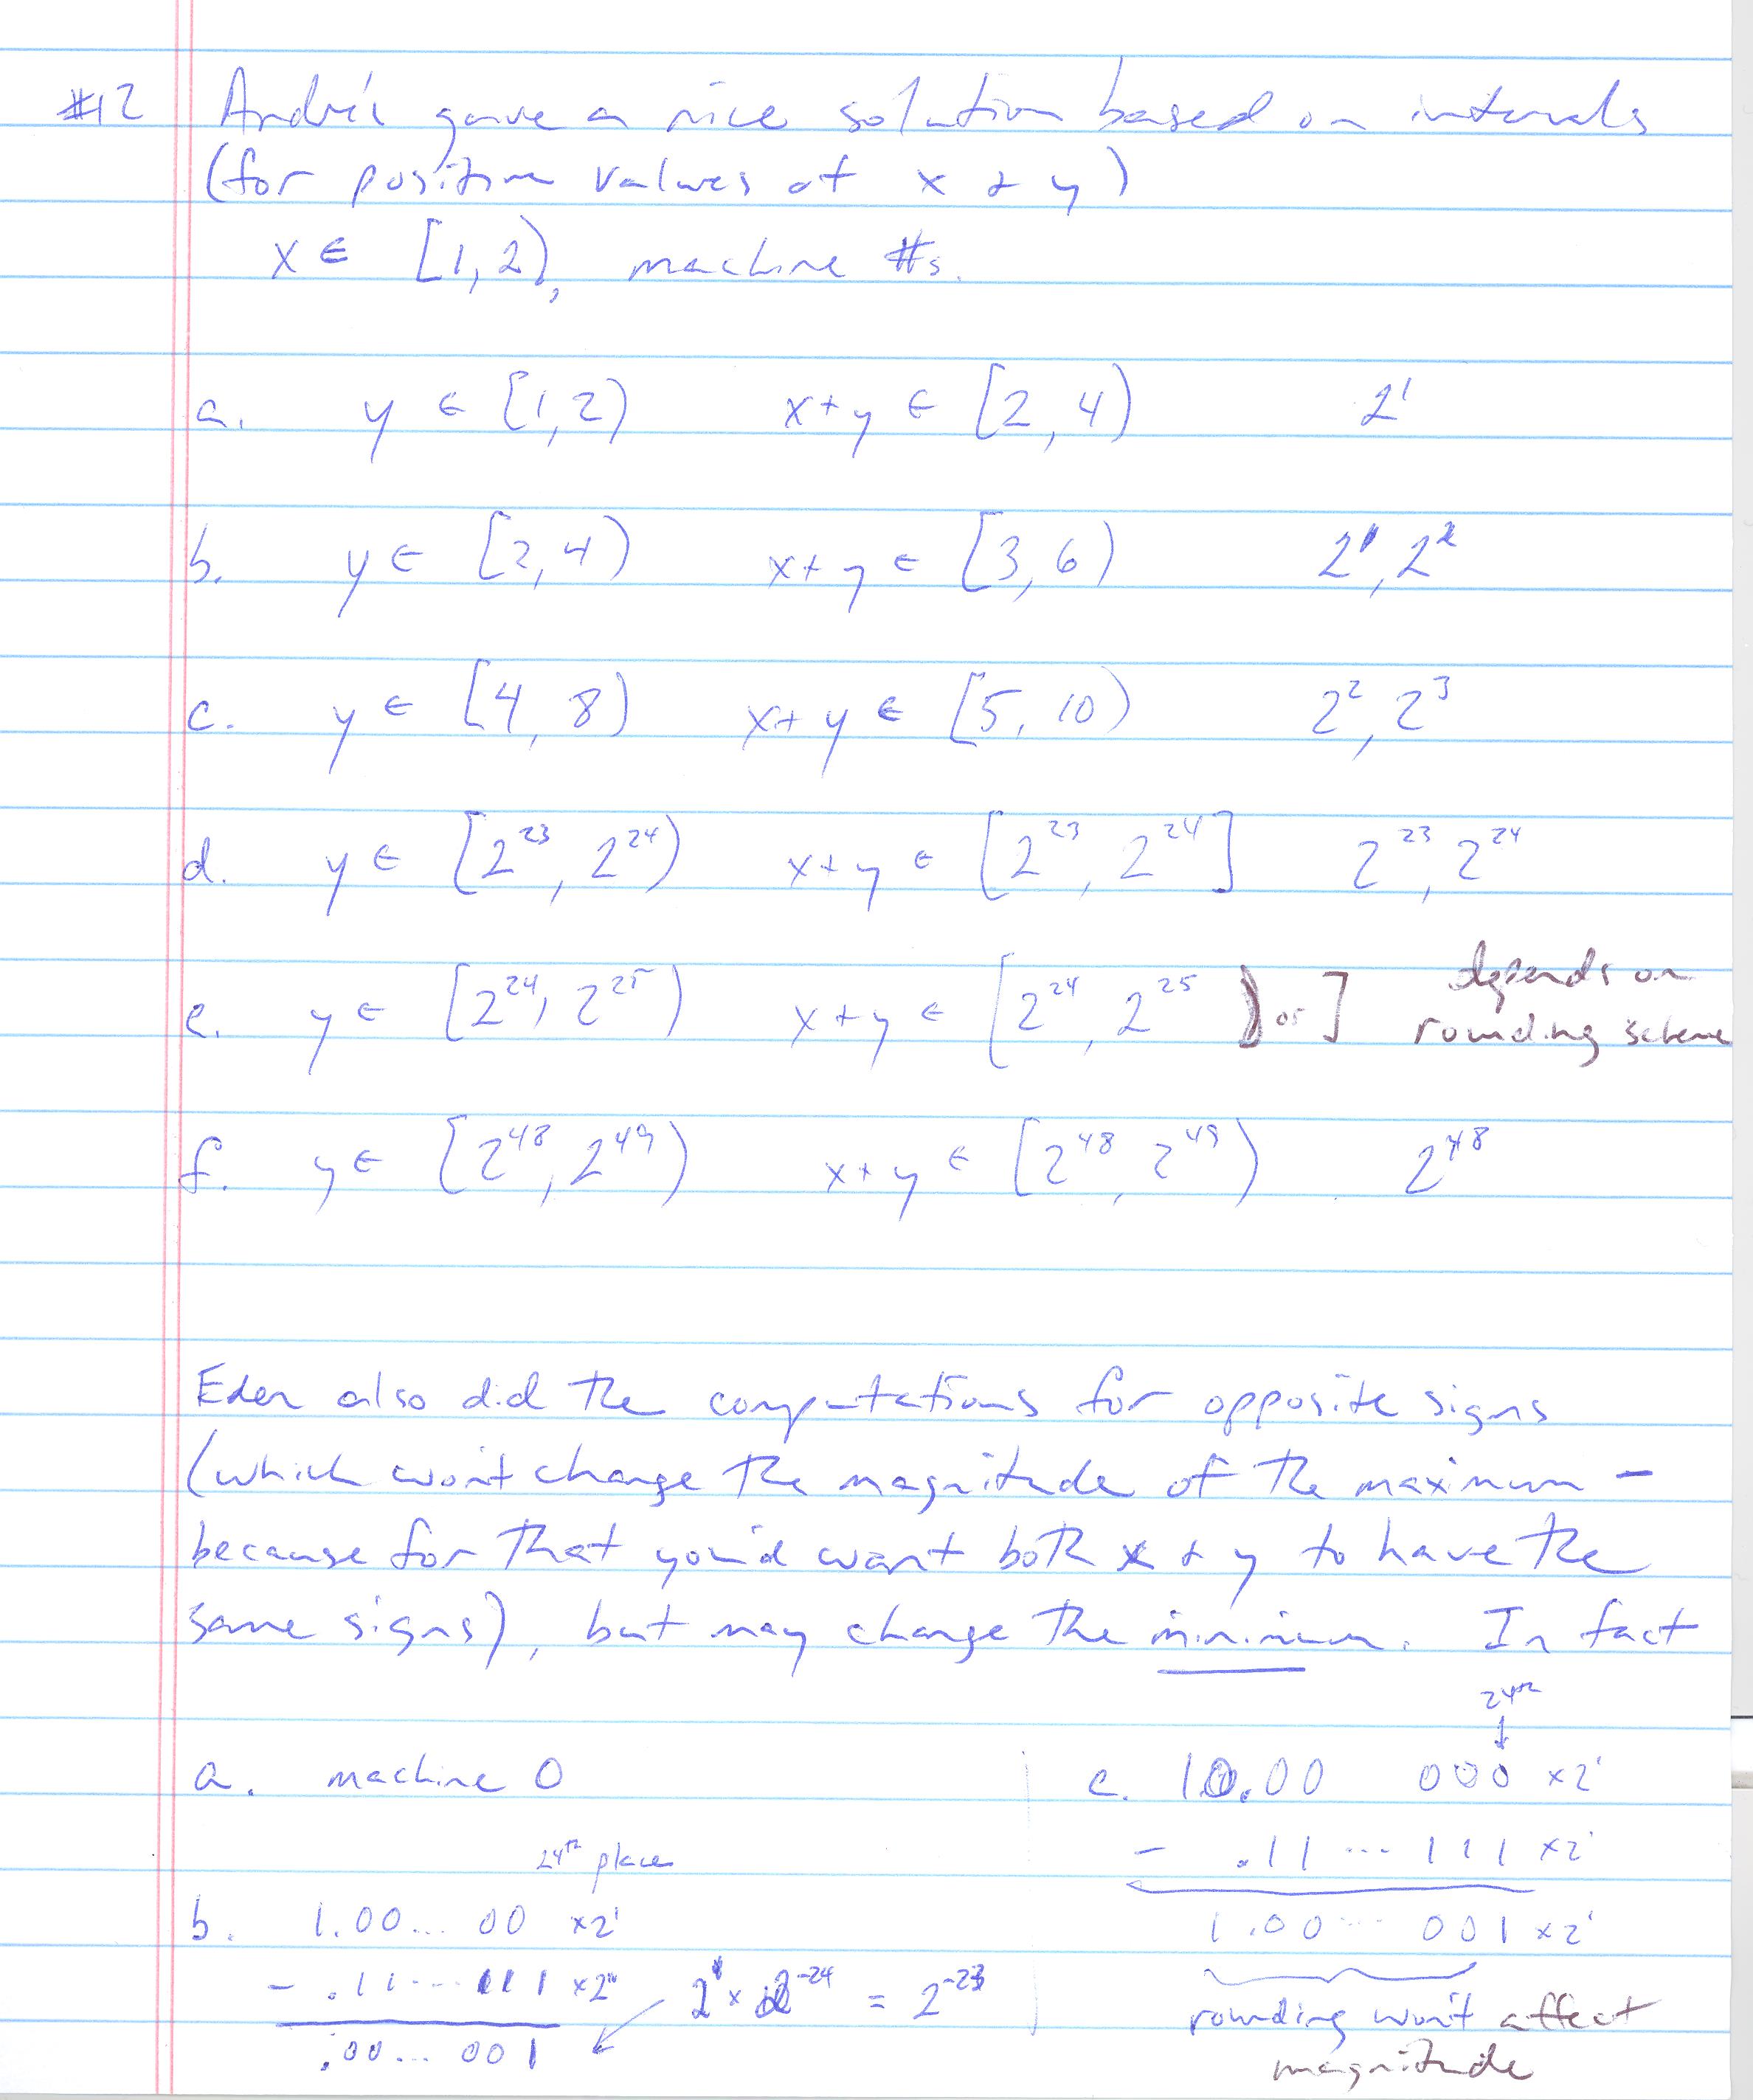 #12 André's gave a nice solution based on intervals
(for positive values of x & y)
x ∈ [1,2), machine #s.
a. y ∈ [1,2) x+y ∈ [2,4) 2¹
b. y ∈ [2,4) x+y ∈ [3,6) 2¹, 2²
c. y ∈ [4,8) x+y ∈ [5,10) 2², 2³
d. y ∈ [2²³, 2²⁴) x+y ∈ [2²³, 2²⁴] 2²³, 2²⁴
e. y ∈ [2²⁴, 2²⁵) x+y ∈ [2²⁴, 2²⁵ ) or ] depends on
rounding scheme
f. y ∈ [2⁴⁸, 2⁴⁹) x+y ∈ [2⁴⁸, 2⁴⁹) 2⁴⁸
Eden also did the computations for opposite signs
(which won't change the magnitude of the maximum –
because for that you'd want both x & y to have the
same signs), but may change the minimum. In fact
a. machine 0
24th place
b. 1.00... 00 ×2¹
- .11...111 ×2¹ 2¹ × 2⁻²⁴ = 2⁻²³
.00...001
24th
↓
c. 10.00 000 ×2¹
- .11...111 ×2¹
1.00...001 ×2¹
rounding won't affect
magnitude